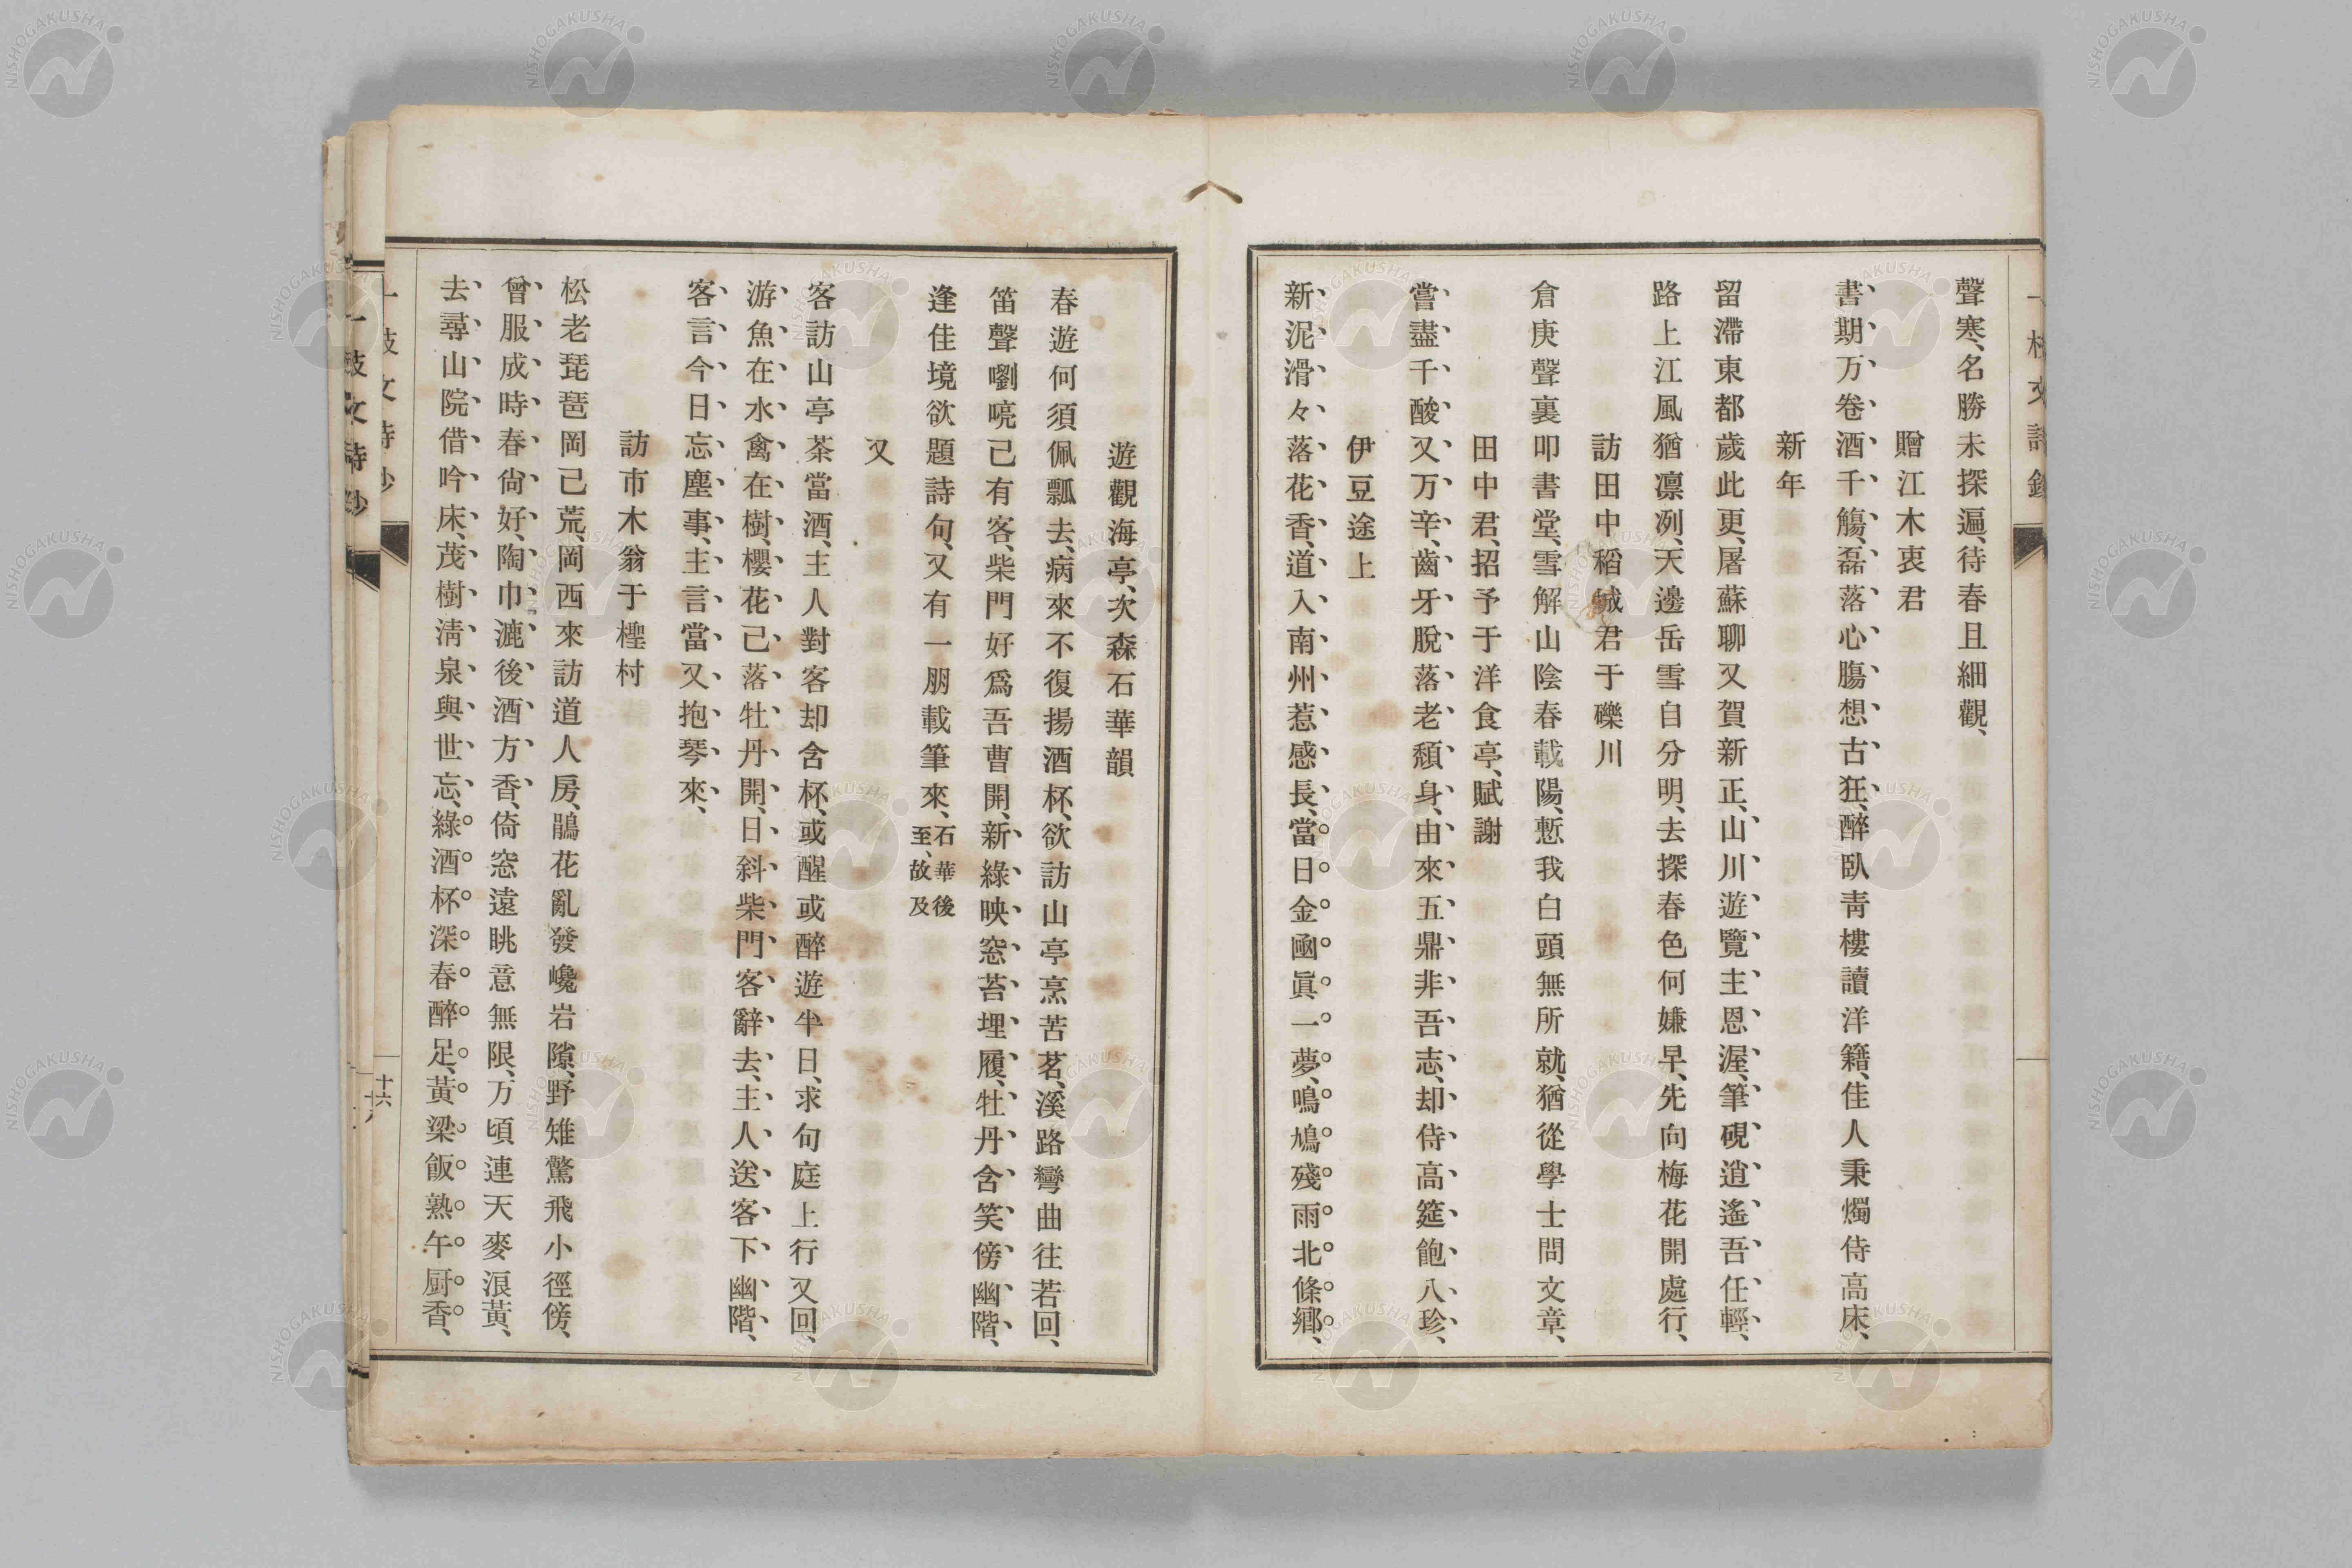 聲寒、名勝未探遍、待春且細觀、
贈江木衷君
書期万卷酒千觴、磊落心膓想古狂、醉臥靑樓讀洋籍、佳人秉燭侍高床、
新年
留滯東都歲此更、屠蘇聊又賀新正、山川遊覽主恩渥、筆硯逍遙吾任輕、
路上江風猶凛冽、天邊岳雪自分明、去探春色何嫌早、先向梅花開處行、
訪田中稻城君于礫川
倉庚聲裏叩書堂、雪解山陰春載陽、慙我白頭無所就、猶從學士問文章、
田中君、招予于洋食亭、賦謝
嘗盡千酸又万辛、齒牙脫落老頽身、由來五鼎非吾志、却侍高筵飽八珍、
伊豆途上
新泥滑々落花香、道入南州惹感長、當日金國眞一夢、鳴鳩殘雨北條鄕、
遊觀海亭、次森石華韻
春遊何須佩瓢去、病來不復揚酒杯、欲訪山亭烹苦茗、溪路彎曲往若回、
笛聲嚠喨已有客、柴門好爲吾曹開、新綠映窓苔埋履、牡丹含笑傍幽階、
逢佳境欲題詩句、又有一朋載筆來、石華後至、故及
又
客訪山亭茶當酒、主人對客却含杯、或醒或醉遊半日、求句庭上行又回、
游魚在水禽在樹、櫻花已落牡丹開、日斜柴門客辭去、主人送客下幽階、
客言今日忘塵事、主言當又抱琴來、
訪市木翁于檉村
松老琵琶岡已荒、岡西來訪道人房、鵑花亂發巉岩隙、野雉驚飛小徑傍、
曾服成時春尙好、陶巾漉後酒方香、倚窓遠眺意無限、万頃連天麥浪黃、
去尋山院借吟床、茂樹淸泉與世忘、綠酒杯深春醉足、黃梁飯熟午厨香、
十六
一枝文詩鈔
NISHOGAKUSHA